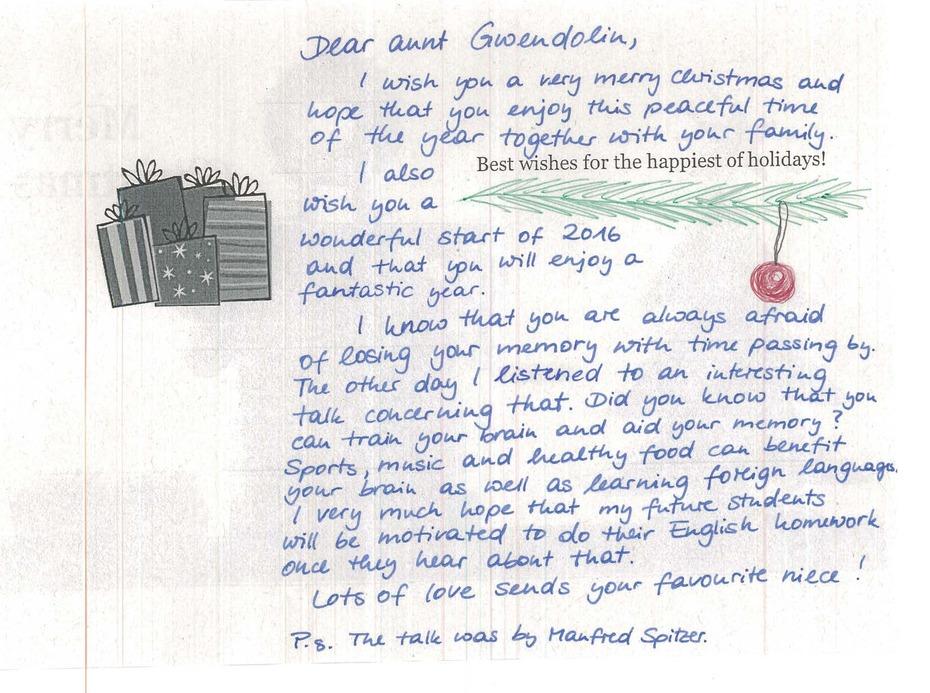 Dear aunt Gwendolin,
I wish you a very merry Christmas and
hope that you enjoy this peaceful time
of the year together with your family.
Best wishes for the happiest of holidays!
I also
wish you a
wonderful start of 2016
and that you will enjoy a
fantastic year.
I know that you are always afraid
of losing your memory with time passing by.
The other day I listened to an interesting
talk concerning that. Did you know that you
can train your brain and aid your memory?
Sports, music and healthy food can benefit
your brain as well as learning foreign languages.
I very much hope that my future students
will be motivated to do their English homework
once they hear about that.
Lots of love sends your favourite niece!
P.s. The talk was by Manfred Spitzer.